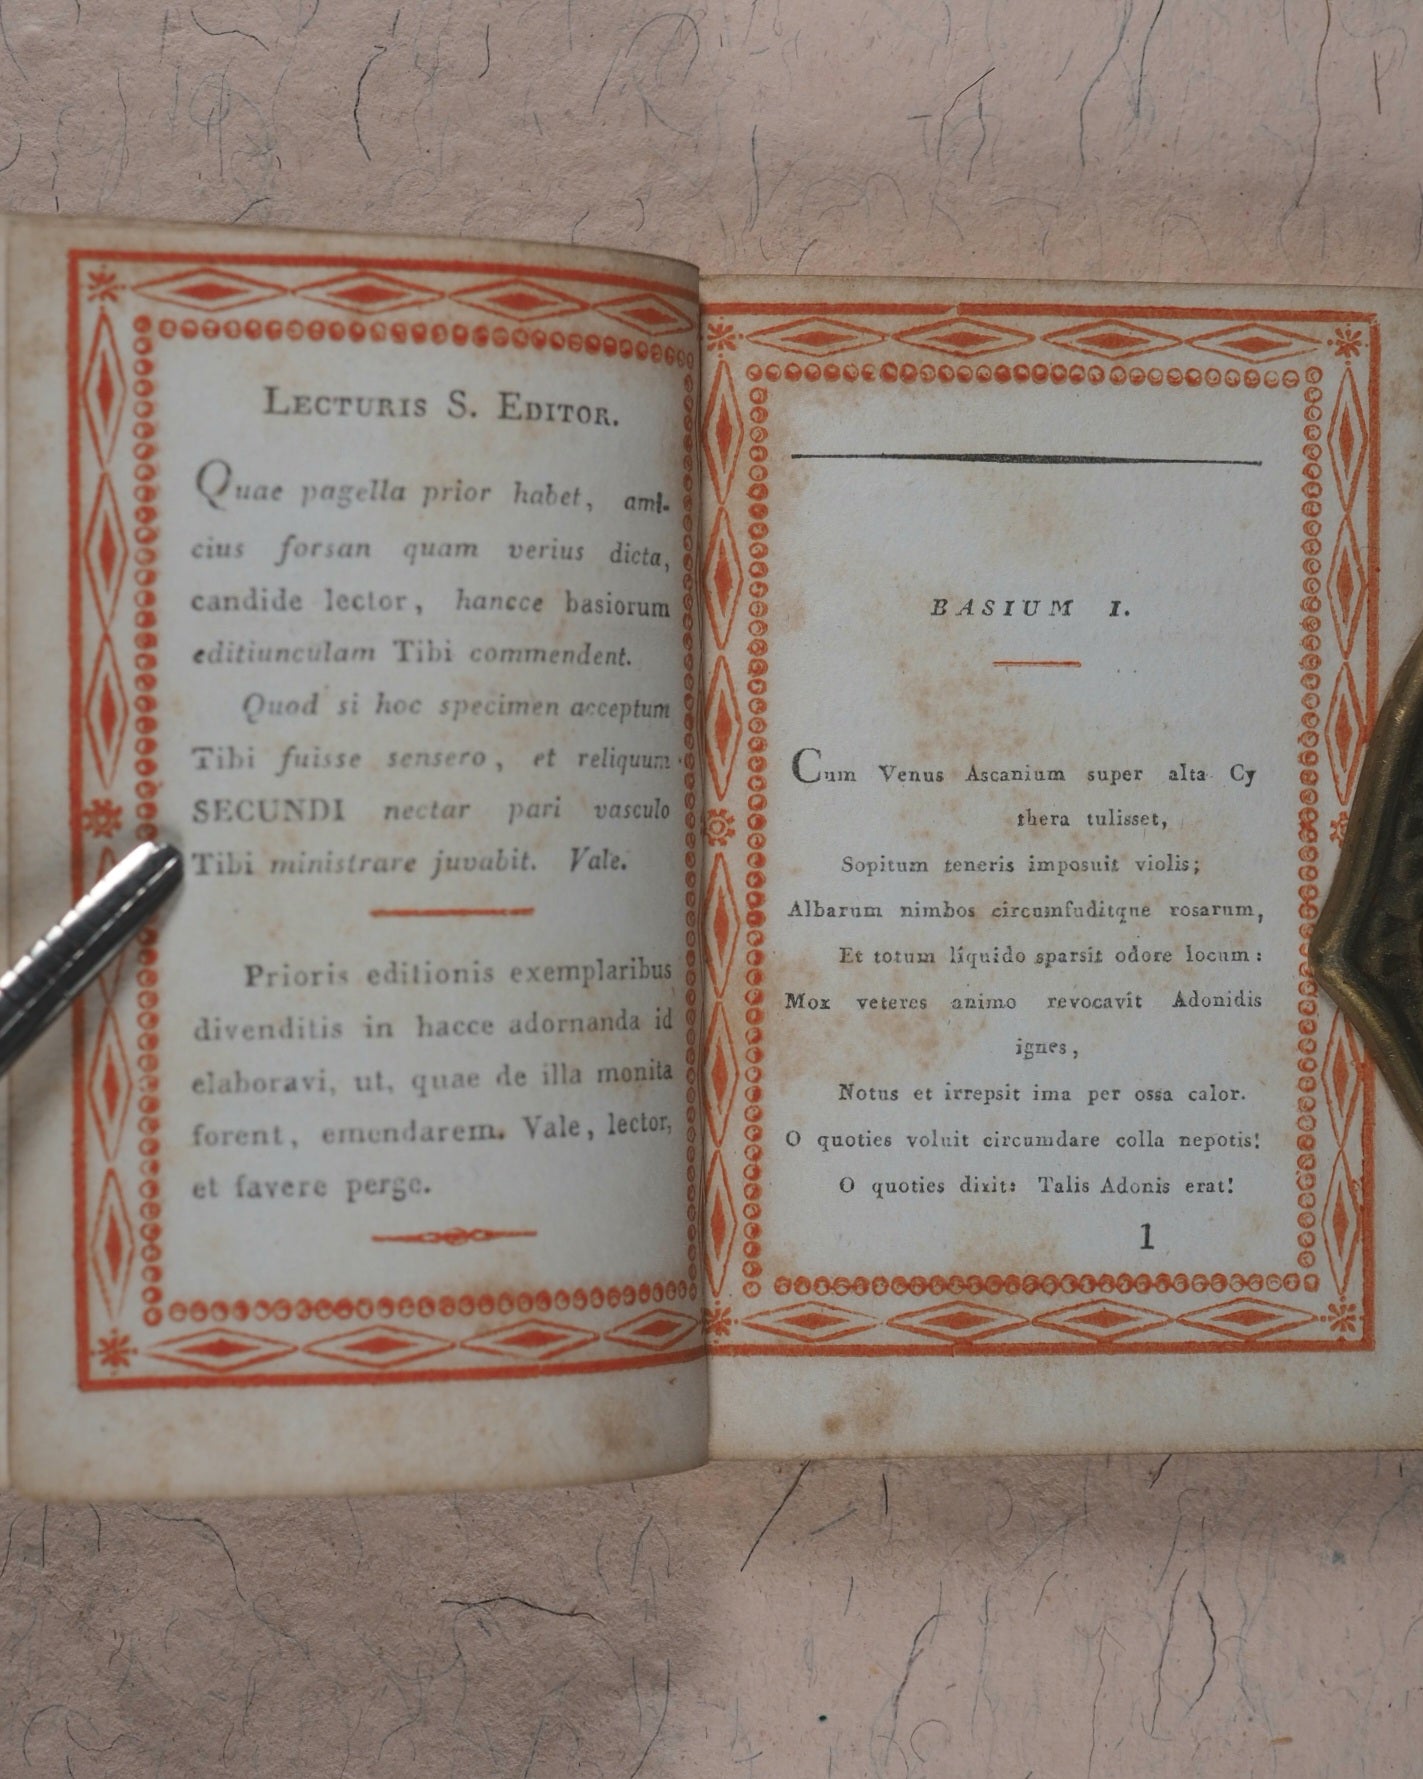 LECTURIS S. EDITOR.
Quae pagella prior habet, ami-
cius forsan quam verius dicta,
candide lector, hancce basiorum
editiunculam Tibi commendent.
Quod si hoc specimen acceptum
Tibi fuisse sensero, et reliquum
SECUNDI nectar pari vasculo
Tibi ministrare juvabit. Vale.
Prioris editionis exemplaribus
divenditis in hacce adornanda id
elaboravi, ut, quae de illa monita
forent, emendarem. Vale, lector,
et favere perge.
BASIUM I.
Cum Venus Ascanium super alta Cy
thera tulisset,
Sopitum teneris imposuit violis;
Albarum nimbos circumfuditque rosarum,
Et totum liquido sparsit odore locum:
Mox veteres animo revocavit Adonidis
ignes,
Notus et irrepsit ima per ossa calor.
O quoties voluit circumdare colla nepotis!
O quoties dixit: Talis Adonis erat!
1